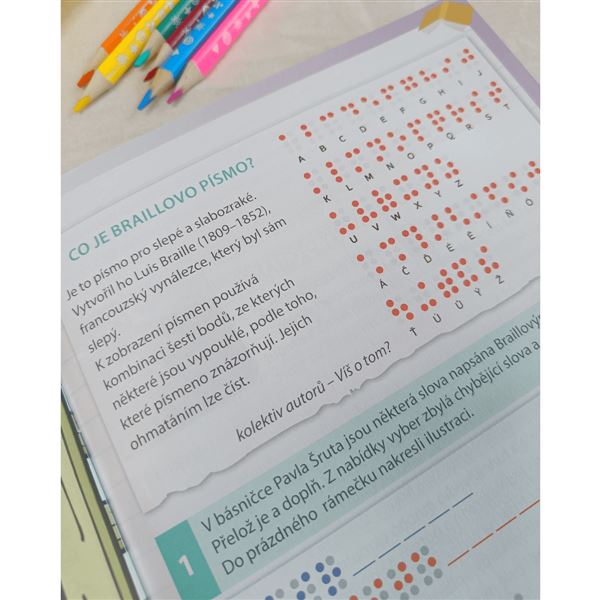 CO JE BRAILLOVO PÍSMO?
Je to písmo pro slepé a slabozraké.
Vytvořil ho Luis Braille (1809–1852),
francouzský vynálezce, který byl sám
slepý.
K zobrazení písmen používá
kombinaci šesti bodů, ze kterých
některé jsou vypouklé, podle toho,
které písmeno znázorňují. Jejich
ohmatáním lze číst.
kolektiv autorů – Víš o tom?
A B C D E F G H I J
K L M N O P Q R S T
U V W X Y Z
Á Č Ď É Ě Í Ň Ó
Ť Ú Ů Ý Ž
1
V básničce Pavla Šruta jsou některá slova napsána Braillovým
Přelož je a doplň. Z nabídky vyber zbylá chybějící slova a
Do prázdného rámečku nakresli ilustraci.